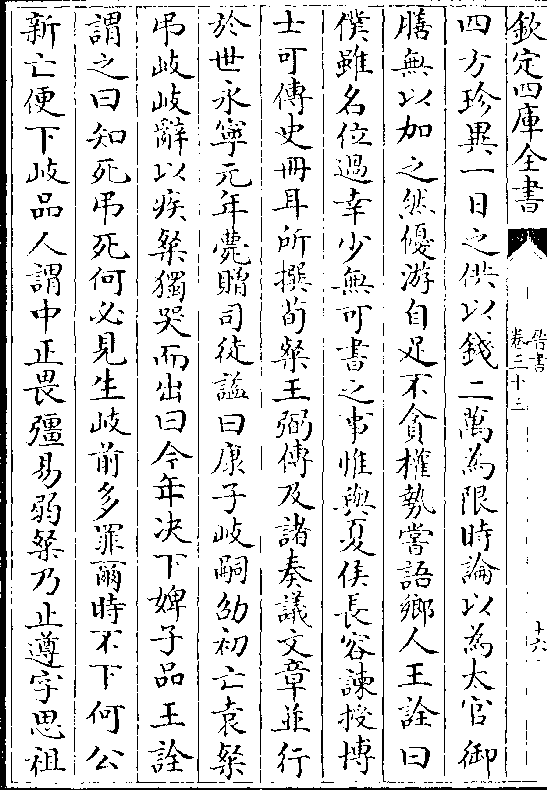 欽定四庫全書
晉書
卷三十三
十六
四方珍異一日之供以錢二萬為限時論以為太官御
膳無以加之然優游自足不貪權勢嘗語鄉人王詮曰
僕雖名位過幸少無可書之事惟與夏侯長容諫授博
士可傳史冊耳所撰荀粲王弼傳及諸奏議文章並行
於世永寧元年薨贈司徒謚曰康子岐嗣劭初亡袁粲
弔岐岐辭以疾粲獨哭而出曰今年决下婢子品王詮
謂之曰知死弔死何必見生岐前多罪爾時不下何公
新亡便下岐品人謂中正畏彊易弱粲乃止遵字思祖